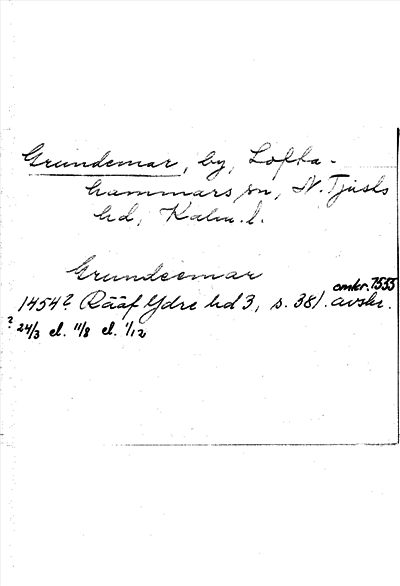 Grundemar, by, Lofta-
hammars sn, N. Tjusts
hd, Kalm. l.
Grundeemar
omkr. 1555
1454? Rääf Ydre hd 3, s. 381. avskr.
? 24/3 el. 11/8 el. 1/12